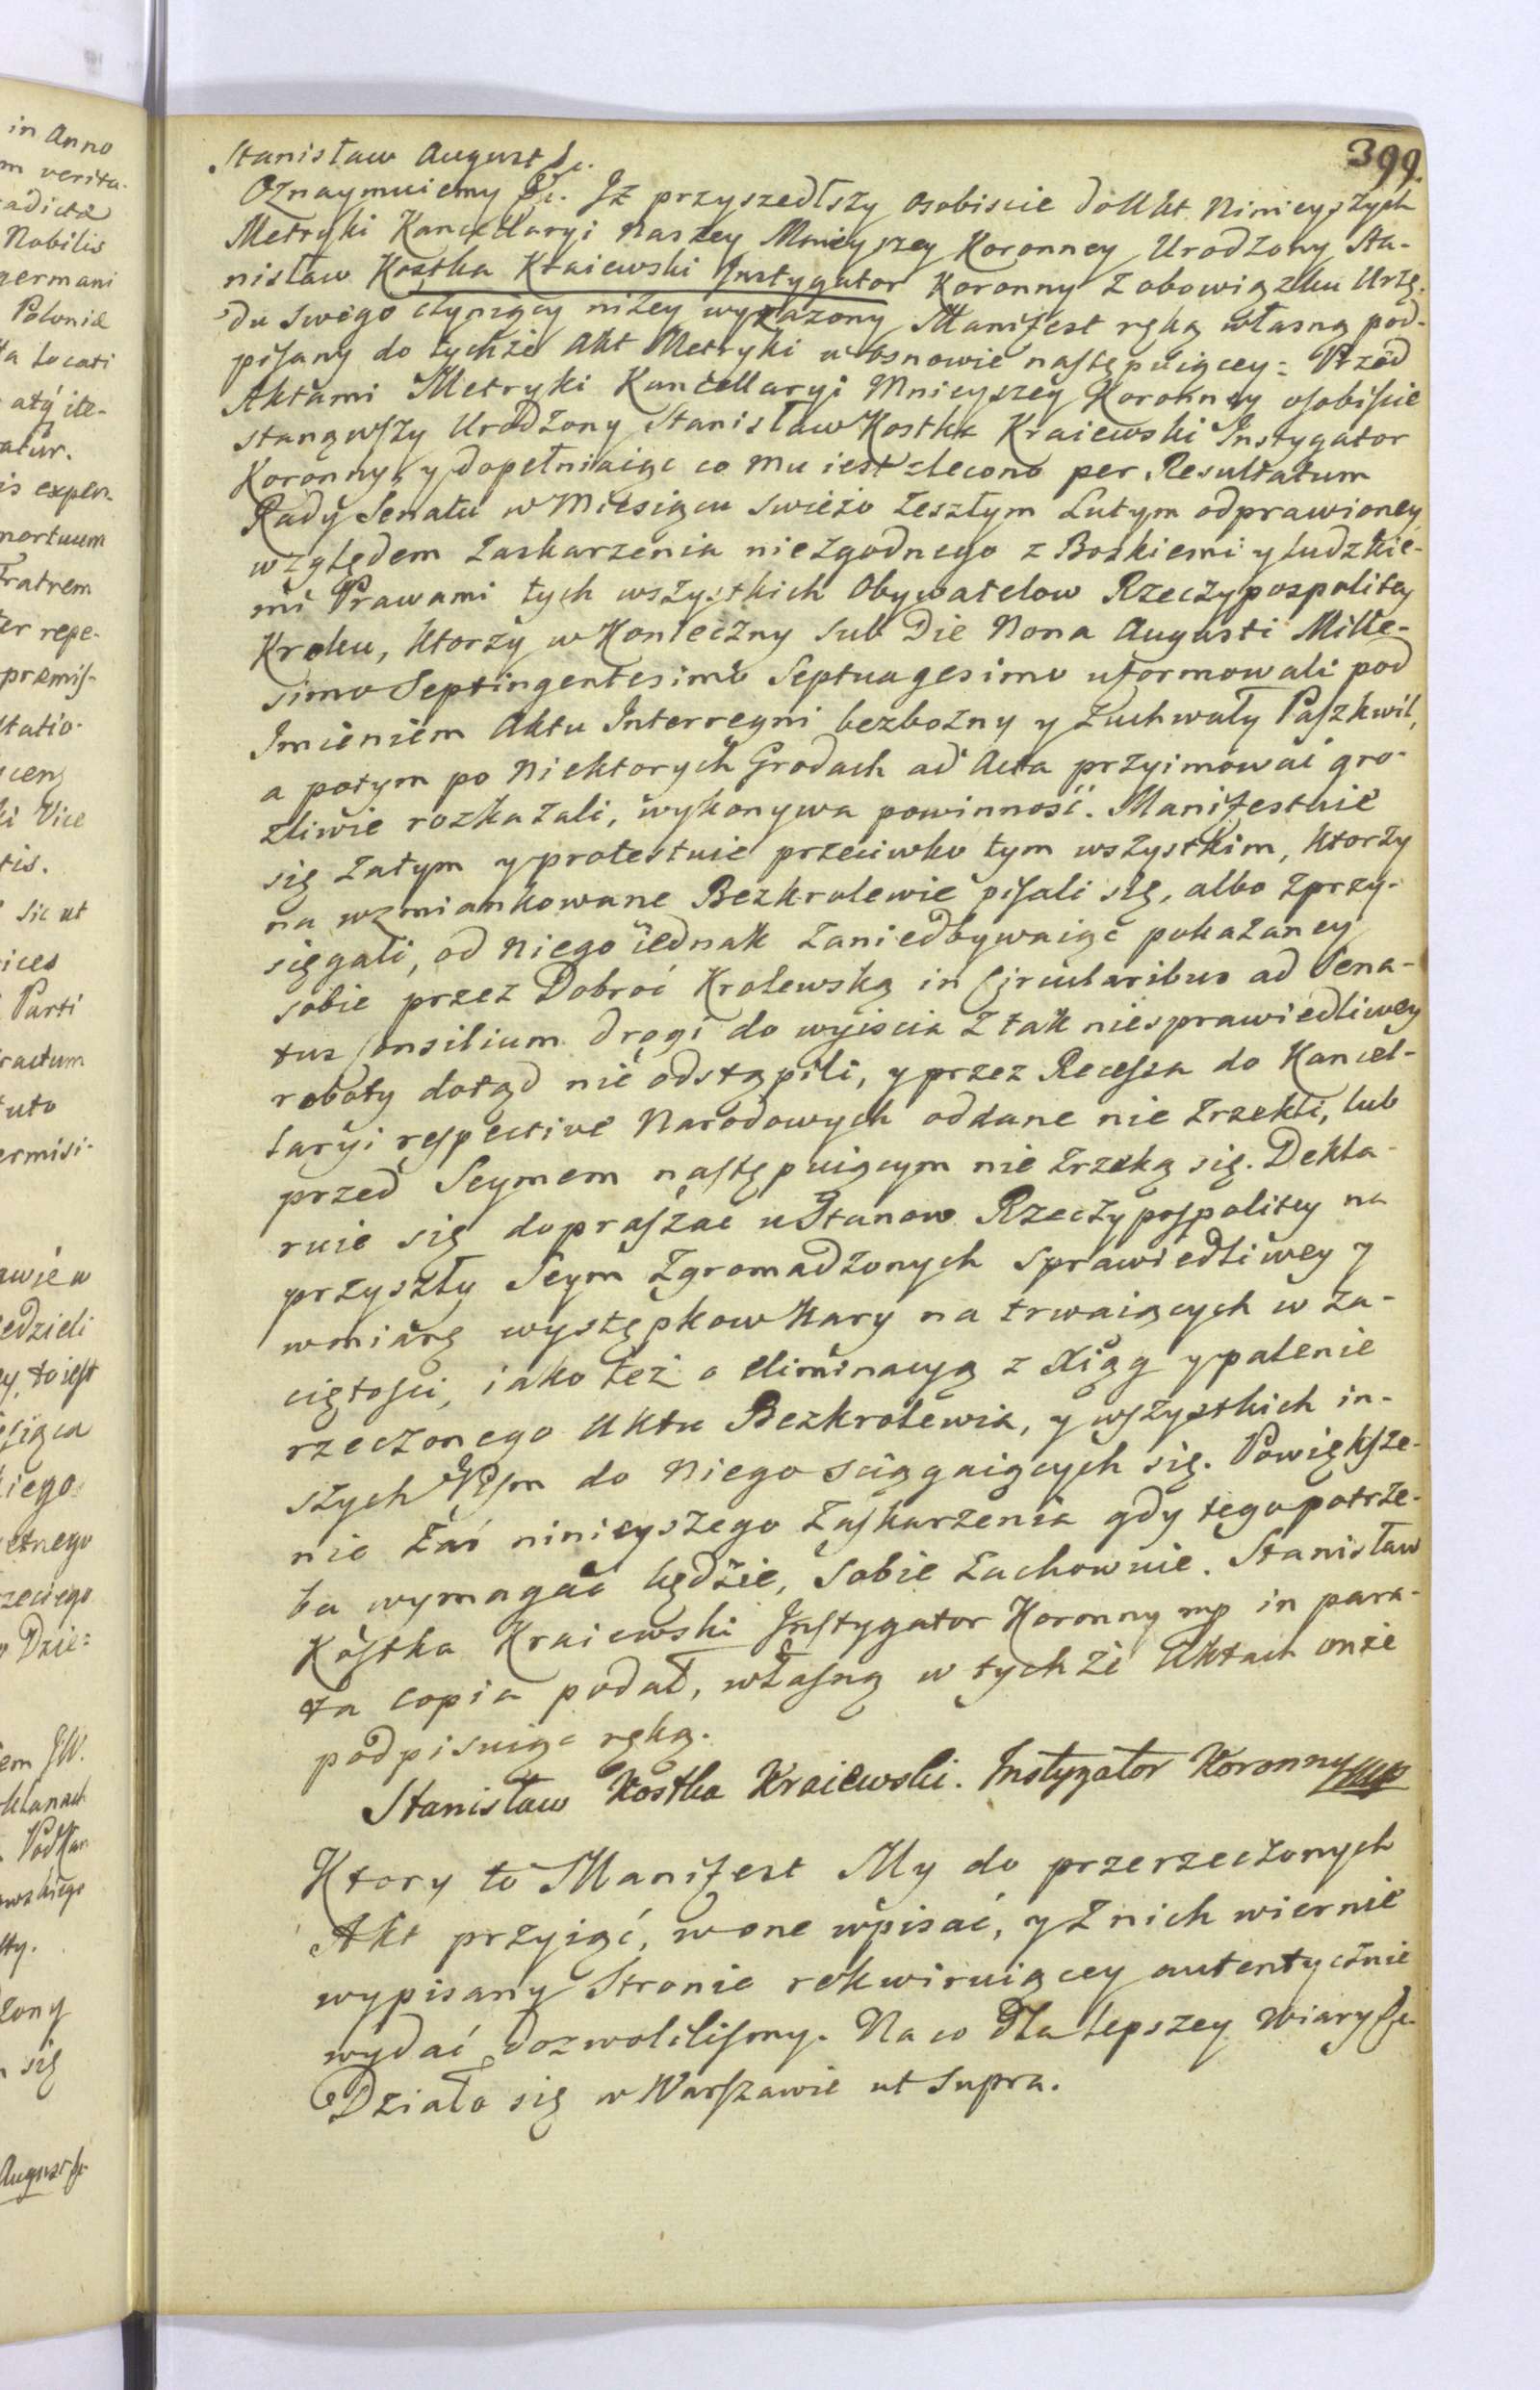 in Anno
m verita-
adicta
Nobilis
germani
Poloniæ
ta Locati
atg ite-
atur.
is expen-
mortuum
Fratrem
ter repe-
præmis-
tatio-
ki Vice
tis.
sic ut
ices
Parti
ractum
tuto
ermisi-
awie w
edzieli
ey, to iest
esiąca
kiego
etnego
rzeciego
Dzie=
em JW.
ktanach
Podkan
owskiego
żony
się
August &c.
399.
Stanisław August &c.
Oznaymuiemy &c. Jż przyszedłszy osobiscie do Akt Ninieyszych
Metryki Kancellaryi Naszey Mnieyszey Koronney Urodzony Sta-
nisław Kostka Kraiewski Jnstygator Koronny z obowiązku Urzę-
du swego czyniący niżey wyrażony Manifest ręką własną pod-
pisany do tychże Akt Metryki w osnowie następuiącey: Przed
Aktami Metryki Kancellaryi Mnieyszey Koronney osobiscie
stanąwszy Urodzony Stanisław Kostka Kraiewski Instygator
Koronny, y dopełniaiąc co mu iest zlecono per Resultatum
Rady Senatu w Miesiącu swieżo zeszłym Lutym odprawioney
względem zaskarzenia niezgodnego z Boskiemi y ludzkie-
mi Prawami tych wszystkich Obywatelow Rzeczypospolitey
Kroku, ktorzy w Konieczny sub Die Nona Augusti Mille-
simo Septingentesimo Septuagesimo uformowali pod
Jmieniem Aktu Interregni bezbożny y zuchwały Paszkwil,
a potym po Niektorych Grodach ad Acta przyimować gro-
zliwie rozkazali, wykonywa powinność. Manifestuie
się zatym y protestuie przeciwko tym wszystkim, ktorzy
na wzmiankowane Bezkrolewie pisali się, albo zprzy-
sięgali, od Niego iednak zaniedbywaiąc pokazaney
sobie przez Dobroć Krolewską in Circularibus ad Sena-
tus Consilium drogi do wyiscia z tak niesprawiedliwey
roboty dotąd nie odstąpili, y przez Recessa do Kancel-
laryi respective Narodowych oddane nie zrzekli, lub
przed Seymem następuiącym nie zrzeką się. Dekla-
ruie się dopraszać u Stanow Rzeczypospolitey na
przyszły Seym zgromadzonych sprawiedliwey y
w miarę występkow kary na trwaiących w za-
ciętosci, iako też o eliminacyą z Xiąg y palenie
rzeczonego Aktu Bezkrolewia, y wszystkich in-
szych Pism do Niego sciągaiących się. Powiększe-
nie zaś ninieyszego zaskarzenia gdy tego potrze-
ba wymagać będzie, sobie zachowuie. Stanisław
Kostka Kraiewski Jnstygator Koronny mp in para-
ta copia podał, własną w tychże Aktach onże
podpisuiąc ręką.
Stanisław Kostka Kraiewski. Instygator Koronny mp
Ktory to Manifest My do przerzeczonych
Akt przyiąć, w one wpisać, y z nich wiernie
wypisany Stronie rekwiruiącey autentycznie
wydać dozwolilismy. Na co dla lepszey wiary &c.
Działo się w Warszawie ut supra.